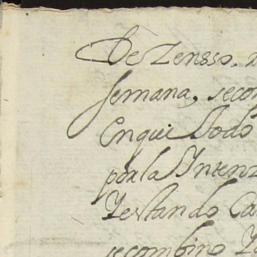 De Zensso. a
semana, seco
Enqui Dodo
por la Intenz
Y estando Ca
se combino Y